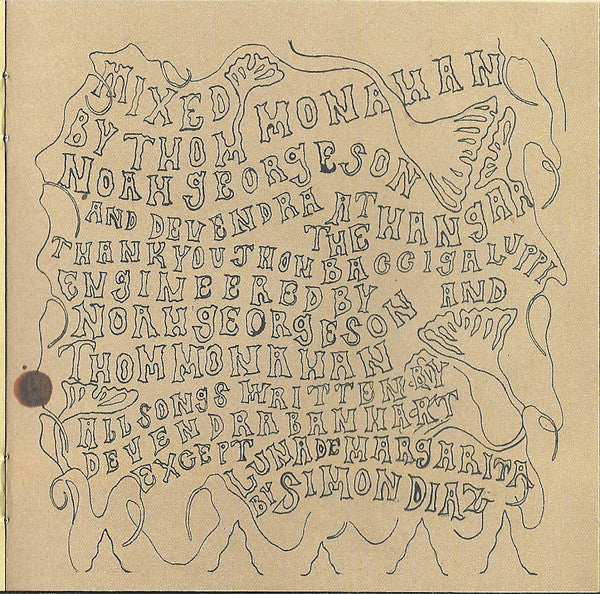 MIXED
BY THOM MONAHAN
NOAH GEORGESON
AND DEVENDRA AT HANGAR
THE
THANK YOU JHON BACCIGALUPPI
ENGINEERED BY
NOAH GEORGESON AND
THOM MONAHAN
ALL SONGS WRITTEN BY
DEVENDRA BANHART
EXCEPT LUNA DE MARGARITA
BY SIMON DIAZ